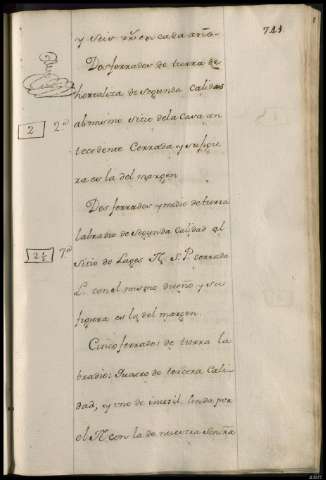 741
y seis rr.s en cada año.
Dos ferrados de tierra de
hortaliza de segunda calidad
2 2.a al mismo sitio de la Casa an
tecedente Cerrada y su figu
ra es la del margen
Dos ferrados y medio de tierra
labradio de segunda calidad al
2½ 7.a sitio de Lagos N. S. P. cerrada
L. con el mismo dueño y su
figura es la del margen.
Cinco ferrados de tierra la
bradio; quatro de tercera Cali-
dad, y uno de inutil linda por
el N. con la de nuestra Señora